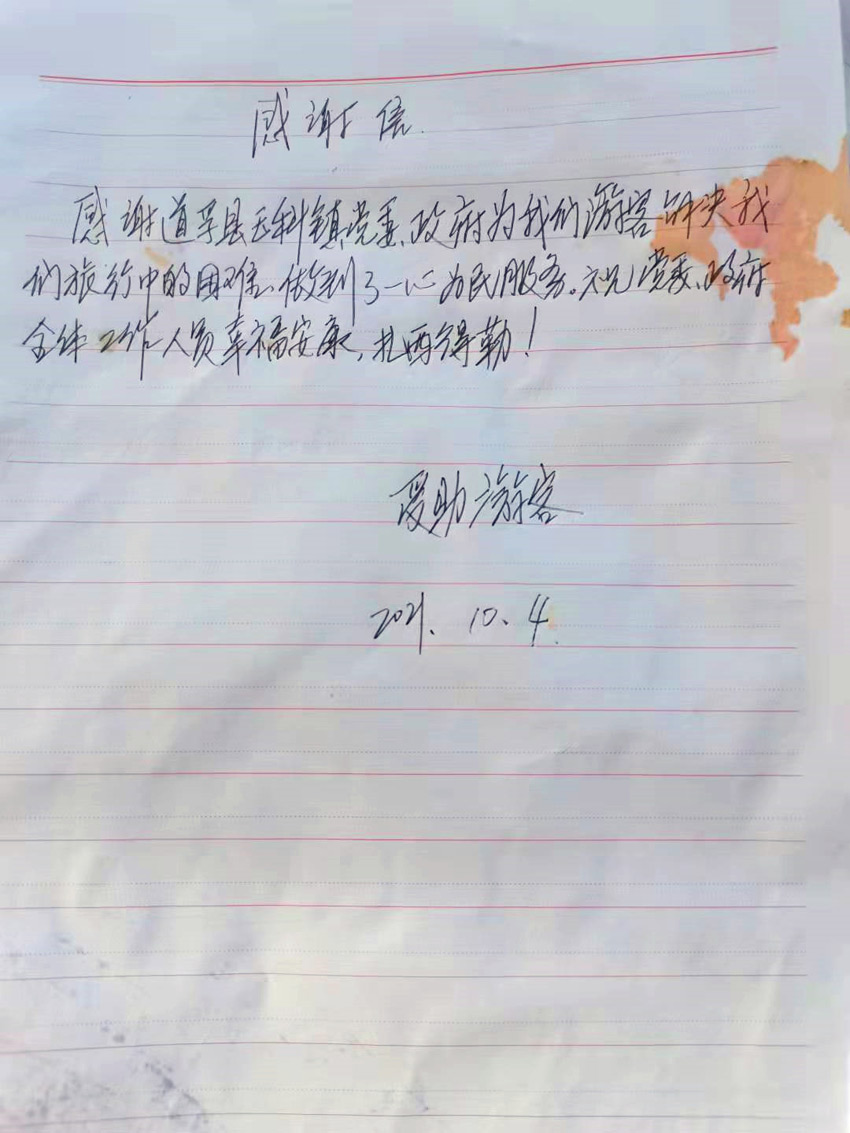 感谢信.
感谢道孚县玉科镇党委、政府为我们游客解决我
们旅行中的困难、做到了一心为民服务。祝党委、政府
全体工作人员幸福安康,扎西得勒!
受助游客
2021.10.4.